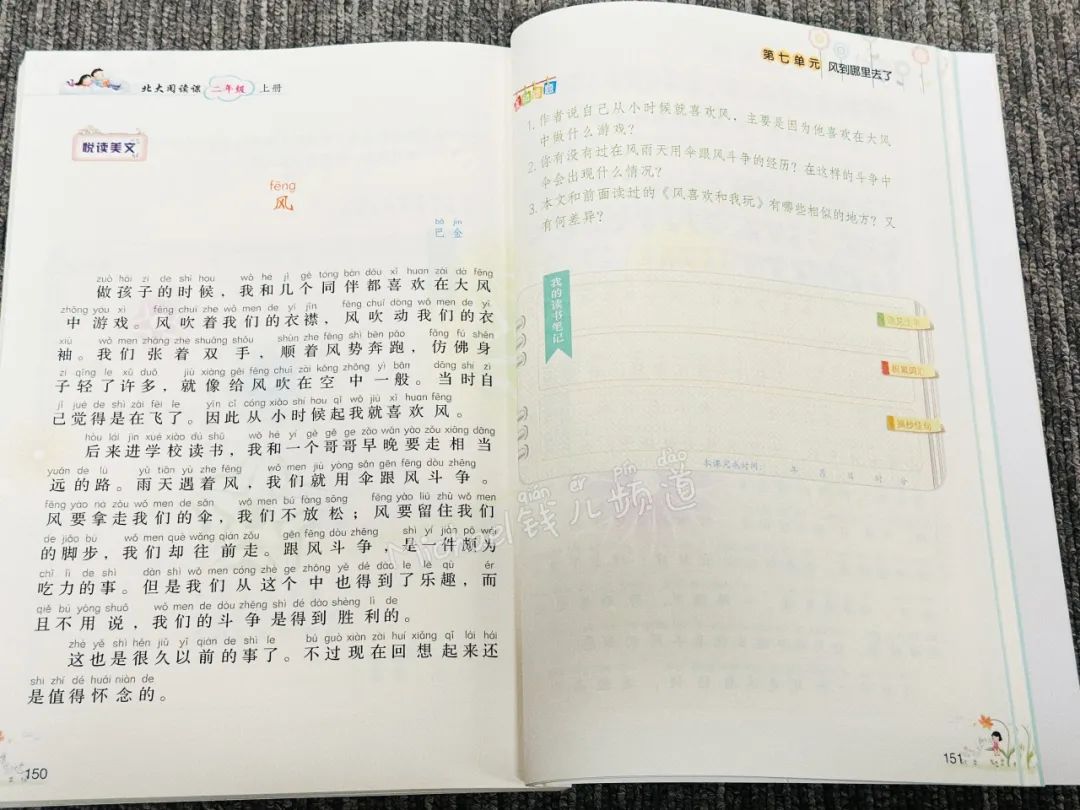 北大阅读课 二年级 上册
悦读美文
fēng
风
bā jīn
巴金
zuò hái zi de shí hou wǒ hé jǐ gè tóng bàn dōu xǐ huan zài dà fēng
做孩子的时候，我和几个同伴都喜欢在大风
zhōng yóu xì fēng chuī zhe wǒ men de yī jīn fēng chuī dòng wǒ men de yī
中游戏。风吹着我们的衣襟，风吹动我们的衣
xiù wǒ men zhāng zhe shuāng shǒu shùn zhe fēng shì bēn pǎo fǎng fú shēn
袖。我们张着双手，顺着风势奔跑，仿佛身
zi qīng le xǔ duō jiù xiàng gěi fēng chuī zài kōng zhōng yì bān dāng shí zì
子轻了许多，就像给风吹在空中一般。当时自
jǐ jué de shì zài fēi le yīn cǐ cóng xiǎo shí hou qǐ wǒ jiù xǐ huan fēng
己觉得是在飞了。因此从小时候起我就喜欢风。
hòu lái jìn xué xiào dú shū wǒ hé yí gè gē ge zǎo wǎn yào zǒu xiāng dāng
后来进学校读书，我和一个哥哥早晚要走相当
yuǎn de lù yǔ tiān yù zhe fēng wǒ men jiù yòng sǎn gēn fēng dòu zhēng
远的路。雨天遇着风，我们就用伞跟风斗争。
fēng yào ná zǒu wǒ men de sǎn wǒ men bú fàng sōng fēng yào liú zhù wǒ men
风要拿走我们的伞，我们不放松；风要留住我们
de jiǎo bù wǒ men què wǎng qián zǒu gēn fēng dòu zhēng shì yí jiàn pō wéi
的脚步，我们却往前走。跟风斗争，是一件颇为
chī lì de shì dàn shì wǒ men cóng zhè ge zhōng yě dé dào le lè qù ér
吃力的事。但是我们从这个中也得到了乐趣，而
qiě bú yòng shuō wǒ men de dòu zhēng shì dé dào shèng lì de
且不用说，我们的斗争是得到胜利的。
zhè yě shì hěn jiǔ yǐ qián de shì le bú guò xiàn zài huí xiǎng qǐ lái hái
这也是很久以前的事了。不过现在回想起来还
shì zhí dé huái niàn de
是值得怀念的。
150
第七单元 风到哪里去了
1. 作者说自己从小时候就喜欢风，主要是因为他喜欢在大风
中做什么游戏？
2. 你有没有过在风雨天用伞跟风斗争的经历？在这样的斗争中
你会出现什么情况？
3. 本文和前面读过的《风喜欢和我玩》有哪些相似的地方？又
有何差异？
我的读书笔记
积累词汇
摘抄佳句
本课完成时间： 年 月 日 时 分
151
qián ér pín dào
Michael钱儿频道